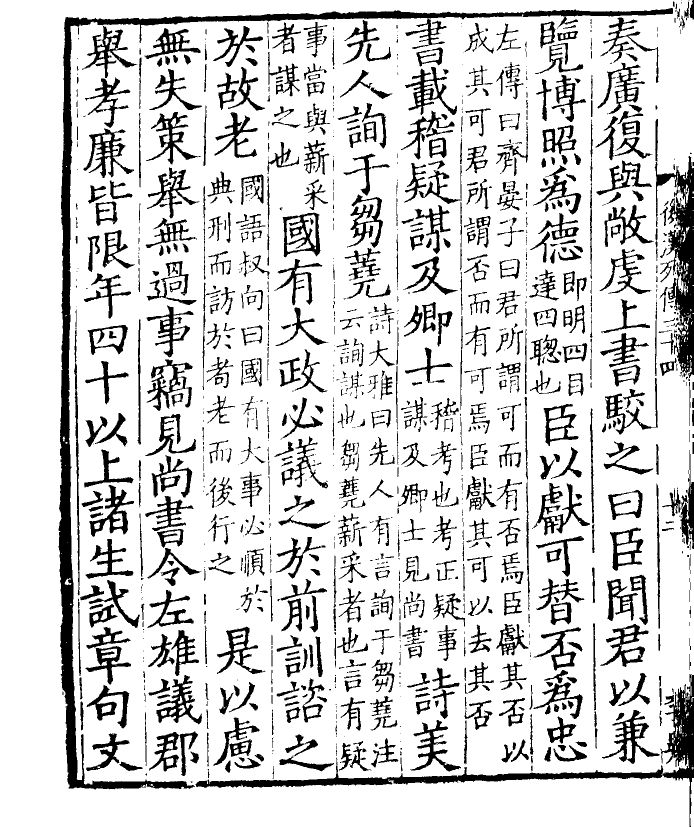 後漢列傳三十四
十二
奏廣復與敞虔上書駮之曰臣聞君以兼
覽博照爲德即明四目達四聰也臣以獻可替否爲忠
左傳曰齊晏子曰君所謂可而有否焉臣獻其否以
成其可君所謂否而有可焉臣獻其可以去其否
書載稽疑謀及卿士稽考也考正疑事謀及卿士見尚書詩美
先人詢于芻蕘詩大雅曰先人有言詢于芻蕘注云詢謀也芻蕘薪采者也言有疑
事當與薪采者謀之也國有大政必議之於前訓諮之
於故老國語叔向曰國有大事必順於典刑而訪於耉老而後行之是以慮
無失策舉無過事竊見尚書令左雄議郡
舉孝廉皆限年四十以上諸生試章句文